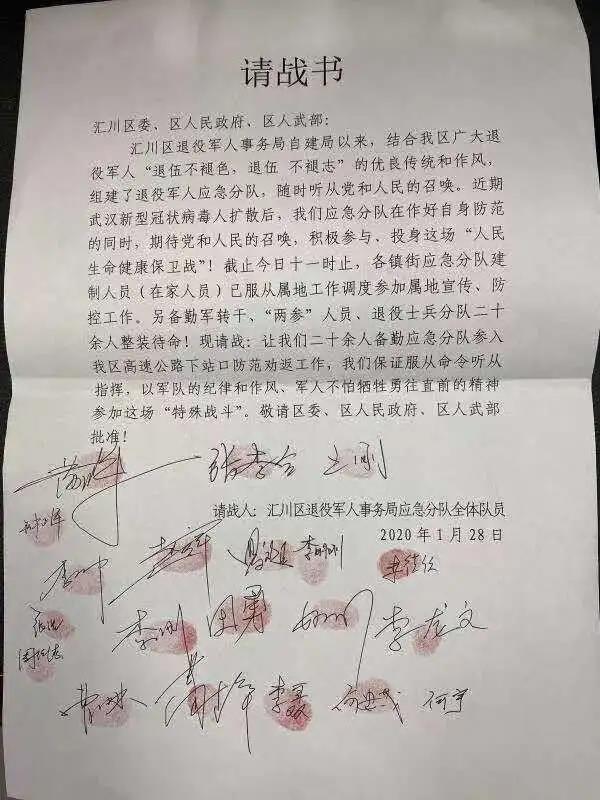 请战书
汇川区委、区人民政府、区人武部：
汇川区退役军人事务局自建局以来，结合我区广大退
役军人“退伍不褪色，退伍 不褪志”的优良传统和作风，
组建了退役军人应急分队，随时听从党和人民的召唤。近期
武汉新型冠状病毒人扩散后，我们应急分队在作好自身防范
的同时，期待党和人民的召唤，积极参与、投身这场“人民
生命健康保卫战”！截止今日十一时止，各镇街应急分队建
制人员（在家人员）已服从属地工作调度参加属地宣传、防
控工作。另备勤军转干、“两参”人员、退役士兵分队二十
余人整装待命！现请战：让我们二十余人备勤应急分队参入
我区高速公路下站口防范劝返工作，我们保证服从命令听从
指挥，以军队的纪律和作风、军人不怕牺牲勇往直前的精神
参加这场“特殊战斗”。敬请区委、区人民政府、区人武部
批准！
请战人：汇川区退役军人事务局应急分队全体队员
2020年1月28日
李龙文